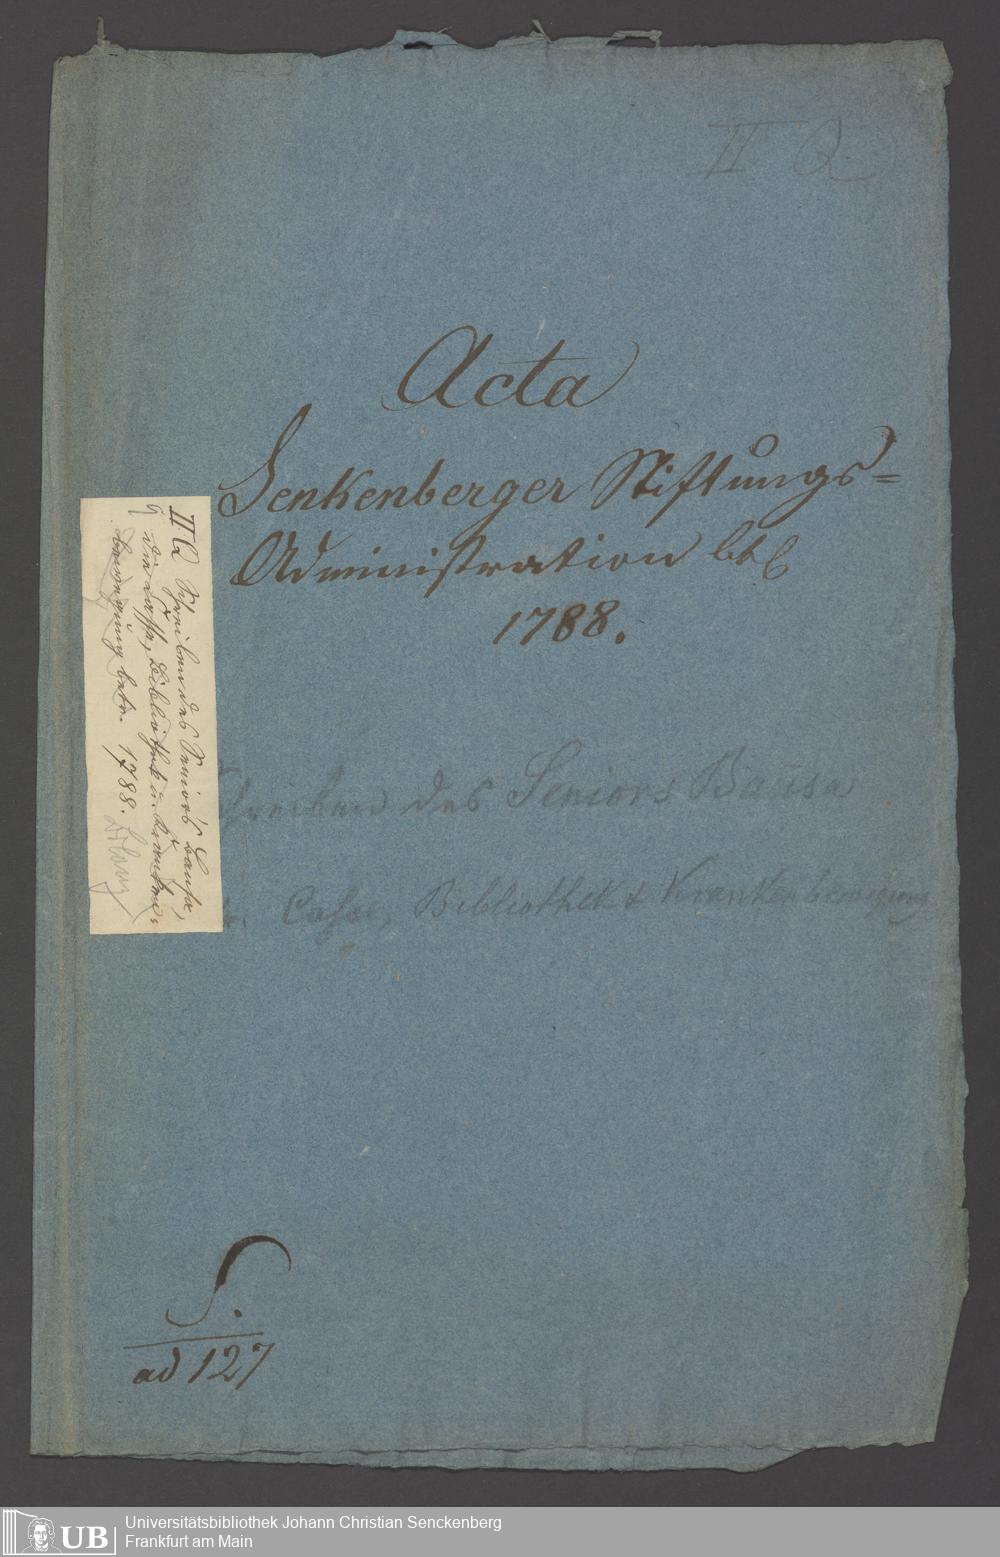 II Q
Acta
Senkenberger Stiftungs=
Administration btr
1788.
Schreiben des Seniors Bausa
Casse, Bibliothek & Krankenbewegung
II. Q Schreiben des Seniors Bausa,
die Casse, Bibliothek u. Kranken=
bewegung betr. 1788.
S.
ad 127
UB
Universitätsbibliothek Johann Christian Senckenberg
Frankfurt am Main